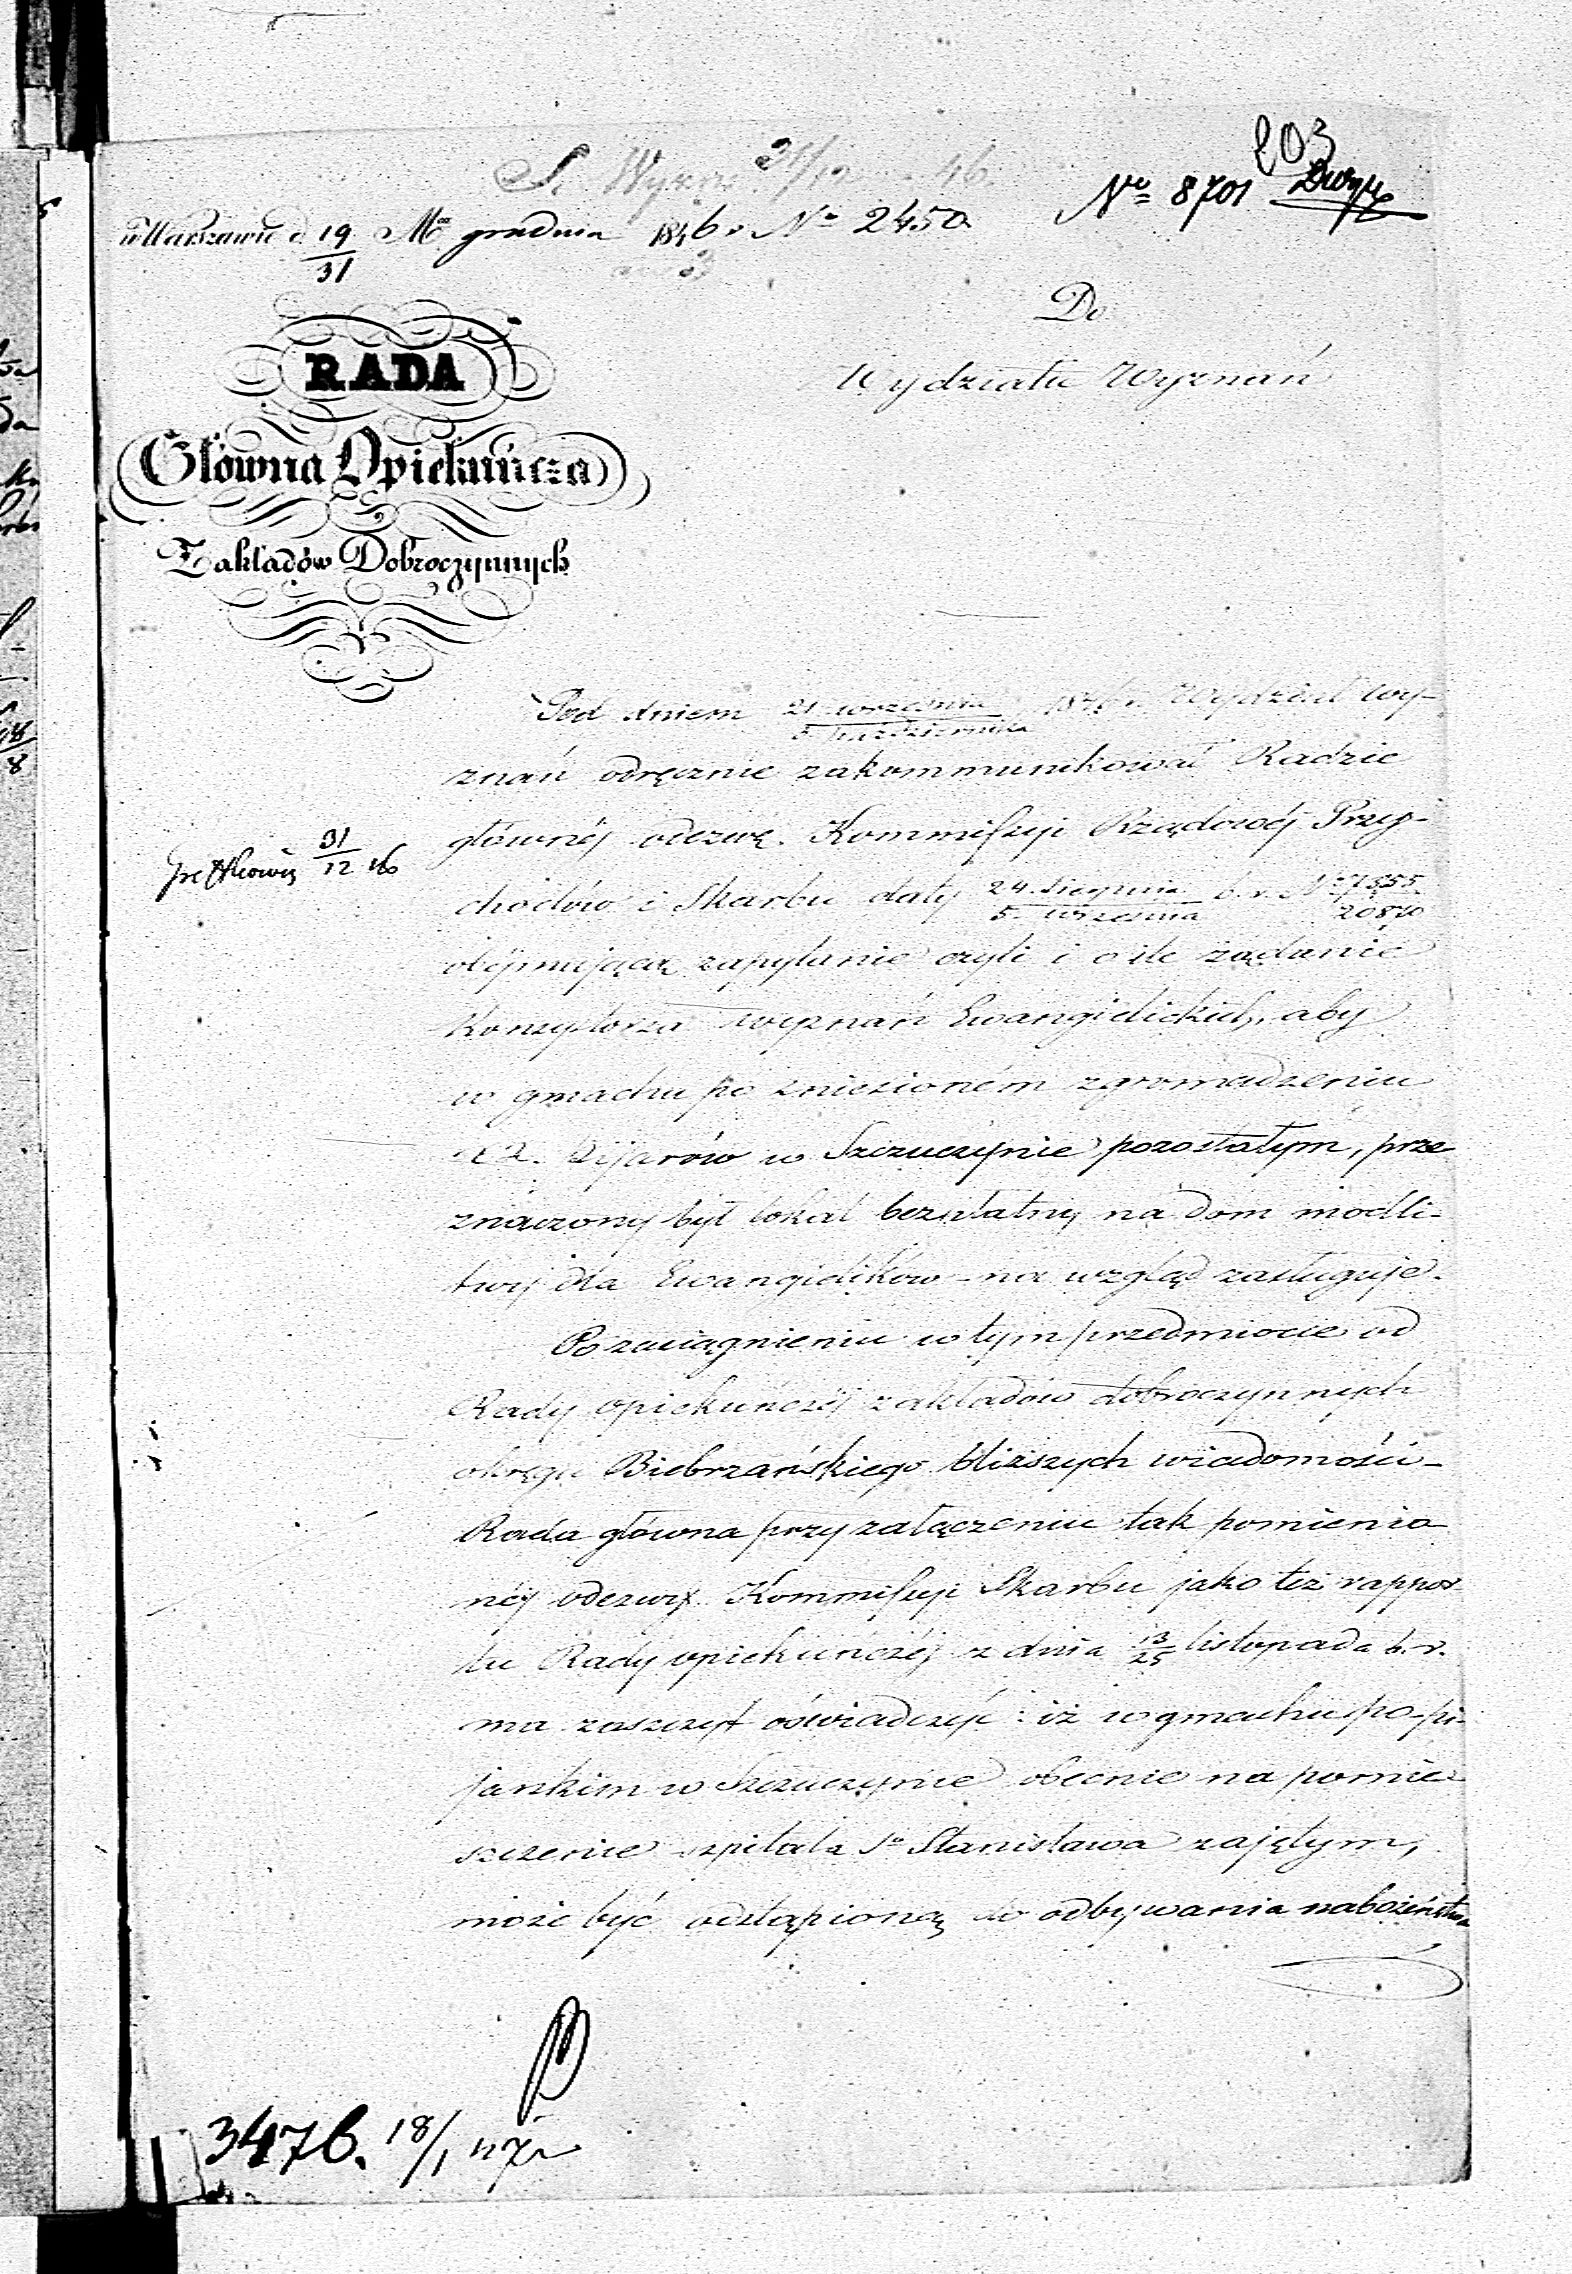 203
S. Wyzn. 31/12 46.
No 8701
w Warszawie d. 19/31 Mca grudnia 1846 r. No 2450.
Do
Wydziału Wyznań
RADA
Główna Opiekuńcza
Zakładów Dobroczynnych
Pod dniem 21 września / 3 października 1846 r. Wydział Wy-
znań odręcznie zakommunikował Radzie
głównéj odezwę Kommissyi Rządowéj Przy-
31/12 46
chodów i Skarbu daty 24 Sierpnia / 5 września b. r. No
obejmującą zapytanie czyli i o ile żądanie
Konsystorza wyznań Ewangielickich, aby
w gmachu po zniesioném zgromadzeniu
XX. Pijarów w Szczuczynie pozostałym, prze
znaczony był lokal bezpłatny na dom modli-
twy dla Ewangielików – na wzgląd zasługuje.
Po zaciągnieniu w tym przedmiocie od
Rady opiekuńczéj zakładów dobroczynnych
okręgu Biebrzańskiego bliższych wiadomości –
Rada główna przy załączeniu tak pomienio
néj odezwy Kommissyi Skarbu jako też rappor
tu Rady opiekuńczéj z dnia 13/25 listopada b. r.
ma zaszczyt oświadczyć: iż w gmachu po-pi-
jarskim w Szczuczynie obecnie na pomie
szczenie szpitala So Stanisława zajętym,
może być odstąpioną do odbywania nabożeństwa
3476. 18/1 47